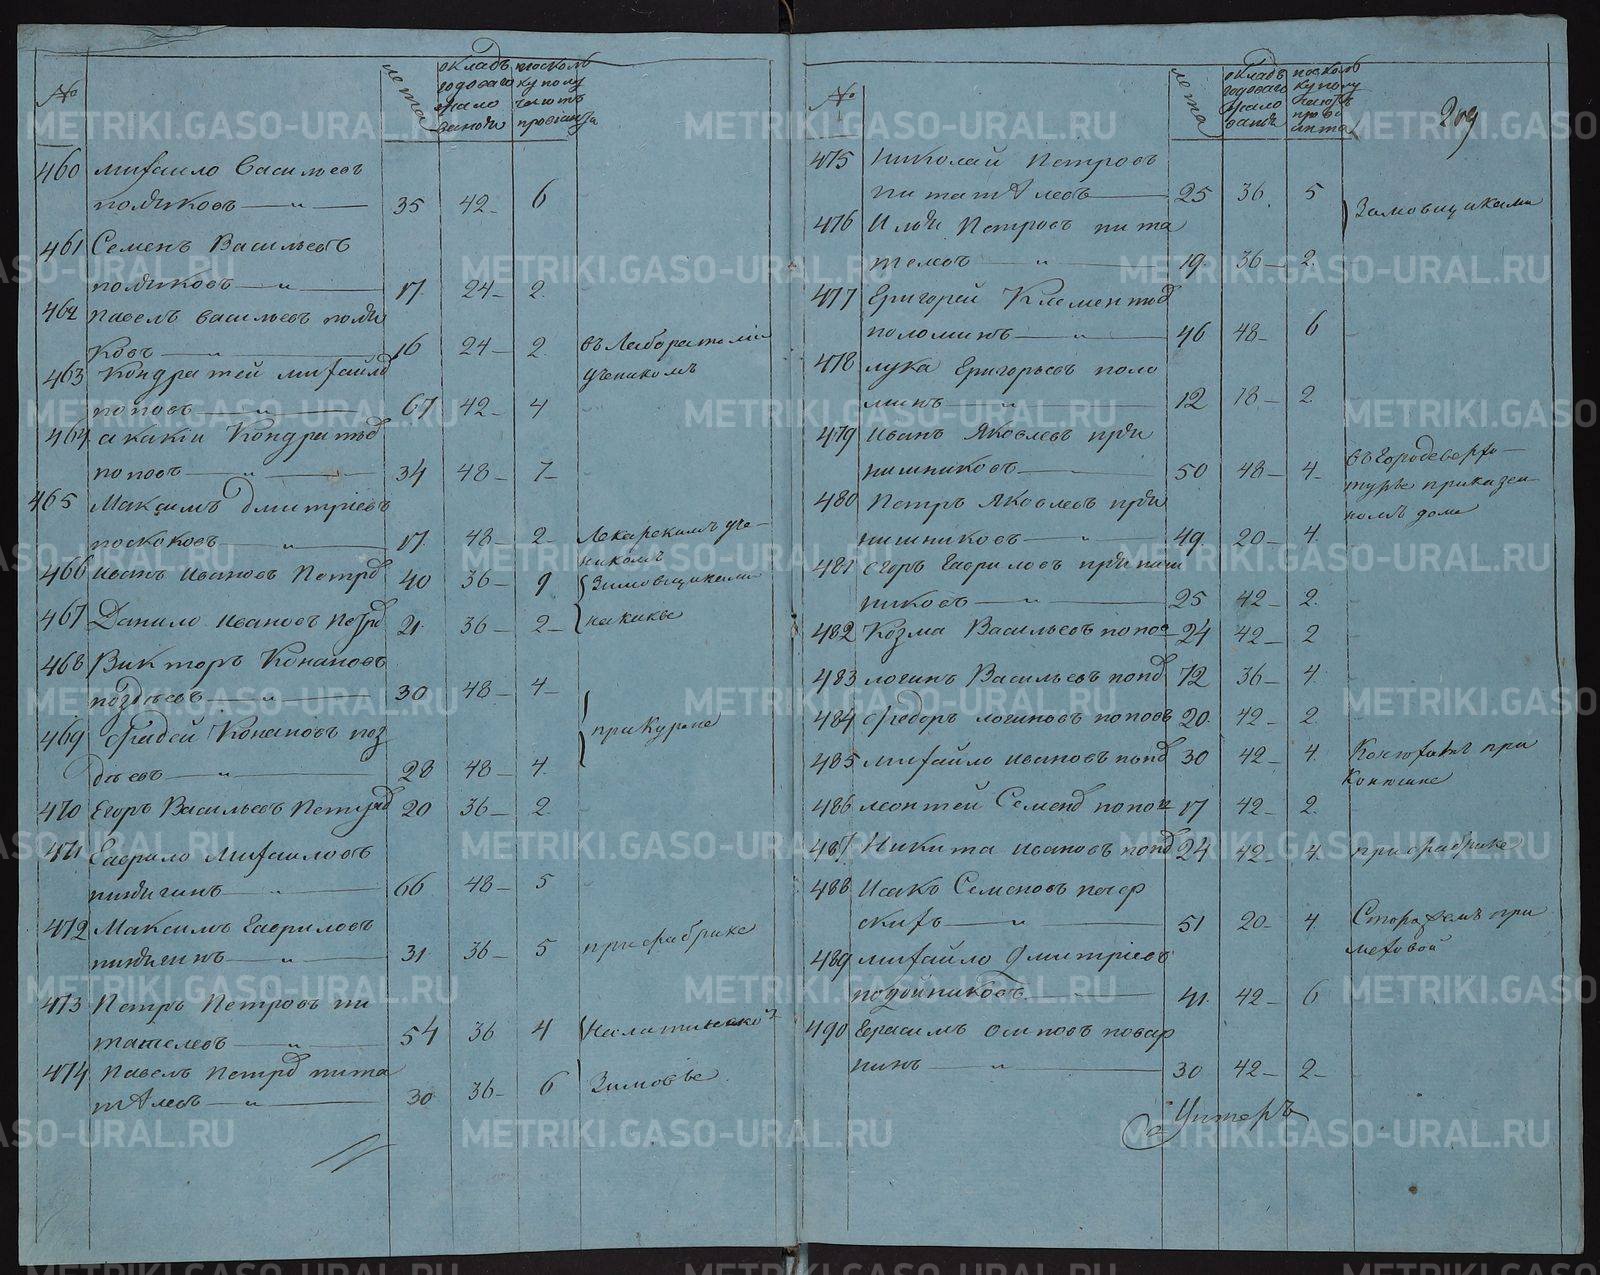 №
лета
окладъ
годоваго
жало
ванья
посколь
ку полу
чаютъ
провіанта
460 Михаило Васильевъ
поляковъ — „ — 35 42 — 6
461 Семенъ Васильевъ
поляковъ — „ — 17. 24 — 2.
462 Павелъ Васильевъ поля
ковъ — „ — 16 24 — 2. въ Лаборатории
ученикомъ
463 Кондратей михайловъ
поповъ — „ — 67 42 — 4
464 акакіи Кондратьевъ
поповъ — „ — 34 48 — 7 —
465 Максимъ Дмитріевъ
посковъ — „ — 17. 48 — 2 — Лекарскимъ уче-
никомъ
466 Иванъ Ивановъ Петровъ 40 36 — 9 Зимовщиками
467 Данило Ивановъ Петровъ 21. 36 — 2 —
468 Викторъ Конановъ
поздѣевъ — „ — 30 48 — 4 —
469 Фадей Конановъ поз
дѣевъ — „ — 28 48 — 4. при Курене
470 Егоръ Васильевъ Петровъ 20 36 — 2.
471 Гаврило Михаиловъ
пинягинъ — „ — 66 48 — 5
472 Максимъ Гавриловъ
пинягинъ — „ — 31 36 — 5 при фабрике
473 Петръ Петровъ пи
тателевъ — „ — 54 36 4
474 Павелъ Петровъ пита
телевъ — „ — 30 36 — 6 Зимовье
№
лета
окладъ
годоваго
жало
ванья
посколь
ку полу
чаютъ
прові
анта
209
475 Николай Петровъ
питателевъ — 25 36. 5 Зимовщиками
476 Илья Петровъ пита
телевъ — „ — 19. 36 — 2.
477 Григорей Клементьевъ
поломинъ — „ — 46 48 — 6
478 лука Григорьевъ поло
минъ — „ — 12 18 — 2
479 Иванъ Яковлевъ пря
нишниковъ — 50 48 — 4. въ Городе Верхо-
турье приказен-
номъ доме
480 Петръ Яковлевъ пря
нишниковъ — „ — 49. 20 — 4.
481 Егоръ Гавриловъ пряниш
никовъ — „ — 25 42 — 2.
482 Козма Васильевъ поповъ 24 42 — 2
483 логинъ Васильевъ поповъ 72 36 — 4.
484 Федоръ логиновъ поповъ 20. 42 — 2
485 михайло ивановъ поповъ 30 42 — 4. Конюхомъ при
Конюшне
486 леонтей Семеновъ поповъ 17 42 — 2.
487 Никита ивановъ поповъ 24 42 — 4. при фабрике
488 Исакъ Семеновъ печер
скихъ — „ — 51 20 — 4. Сторожемъ при
меховой
489 михайло Дмитріевъ
подойниковъ — 41. 42 — 6
490 Герасимъ осиповъ повар
нинъ — „ — 30 42 — 2 —